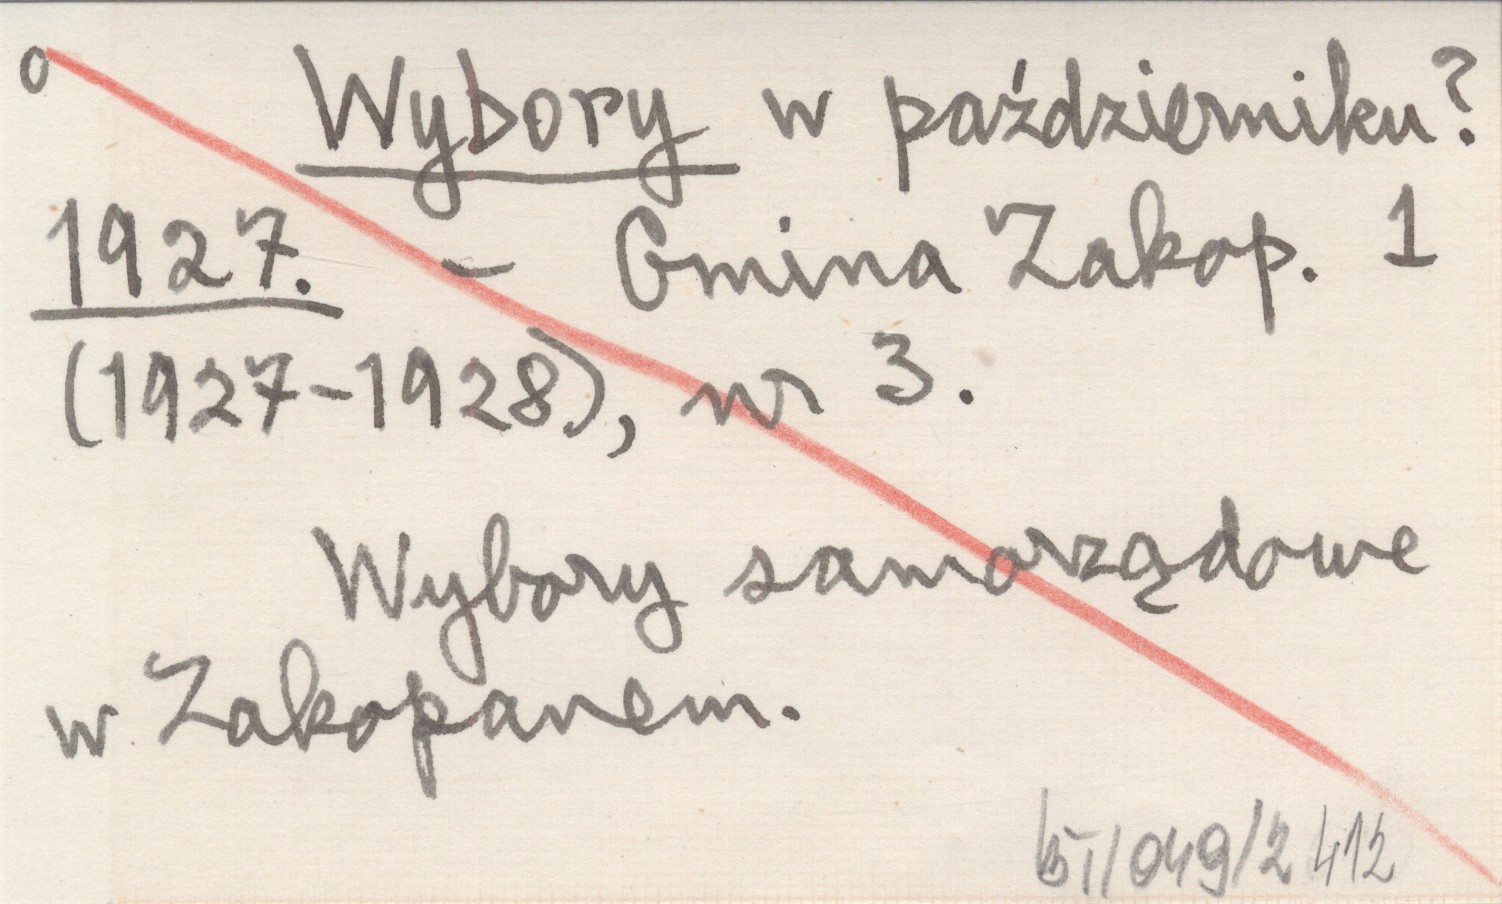 o Wybory w październiku?
1927. – Gmina Zakop. 1
(1927-1928), nr 3.
Wybory samorządowe
w Zakopanem.
/049/2 412